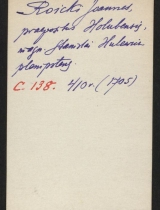 Roicki Joannes,
praepositus Holubensis,
wojs. Stanislai Hulewicz
plenipotens
C. 138. 410 r. (1705)